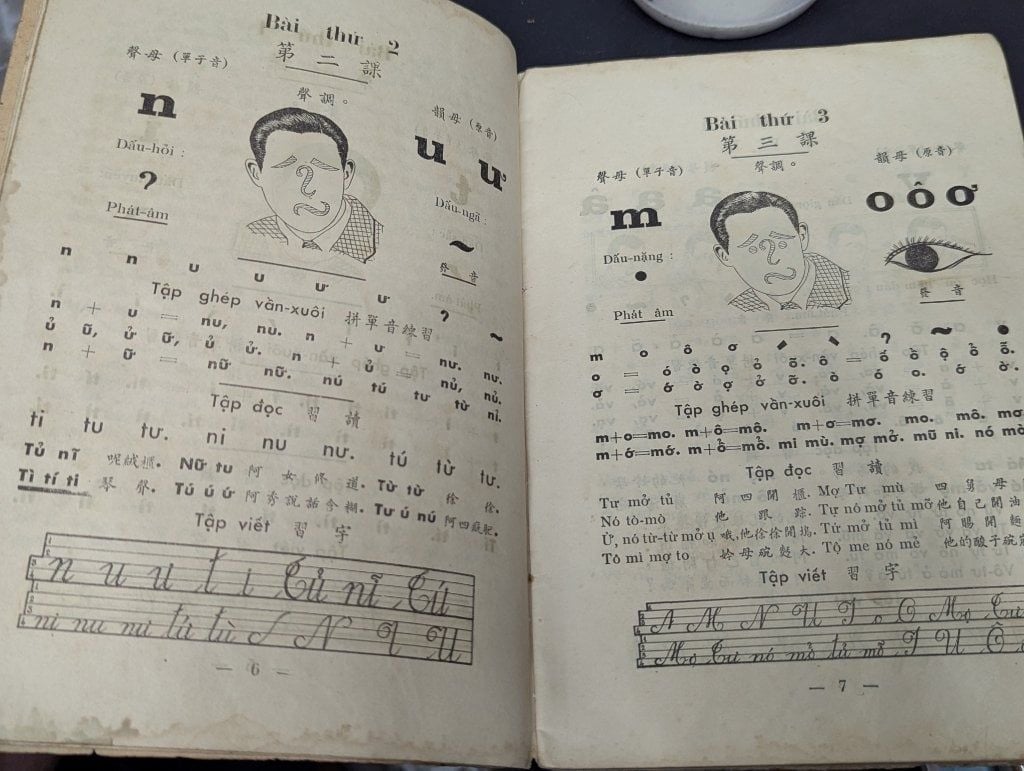 Bài thứ 2
第二課
聲母 (單子音)
聲調。
韻母 (原音)
n
u ư
Dấu-hỏi :
Dấu-ngã :
?
~
Phát-âm
發音
n n u u ư ư
Tập ghép vần-xuôi 拼單音練習 ? ~
n + u = nu, nù. n + ư = nư. nư.
ủ ũ, ử ữ, ủ ử. n + ủ = nủ, nủ.
n + ữ = nữ nữ. nú tú tư từ ni.
Tập đọc 習讀
ti tu tư. ni nu nư. tú từ tư.
Tủ nĩ 呢絨櫃. Nữ tu 阿女修道. Từ từ 徐徐.
Tì tí ti 琴聲. Tú ú ớ 阿秀說話含糊. Tư ú nú 阿四
Tập viết 習字
n u ư t i Tủ nĩ Tú
ni nu nư tú tù N I U
— 6 —
Bài thứ 3
第三課
聲母 (單子音)
聲調。
韻母 (原音)
m
o ô ơ
Dấu-nặng :
Phát âm
發音
m o ô ơ ? ~
o = ó ò ọ ỏ õ. ô = ố ồ ộ ổ ỗ.
ơ = ớ ờ ợ ở ỡ.
Tập ghép vần-xuôi 拼單音練習
m+o=mo. m+ô=mô. m+ơ=mơ. mo. mô. mơ
m+ớ=mớ. m+ỗ=mỗ. mi mù. mợ mở. mũ ni. nó mò
Tập đọc 習讀
Tư mở tủ 阿四開櫃. Mợ Tư mù 四舅母
Nó tò-mò 他跟踪. Tự nó mở tủ mỡ 他自己開油
Ừ, nó từ-từ mở ụ 哦,他徐徐開塢. Tứ mở tủ mì 阿賜開麵
Tô mì mợ to 妗母碗麪大. Tộ me nó mẻ 他的酸子碗
Tập viết 習字
A M N U I O Mợ Tư
Mợ Tư nó mở tủ mỡ I U Ô
— 7 —